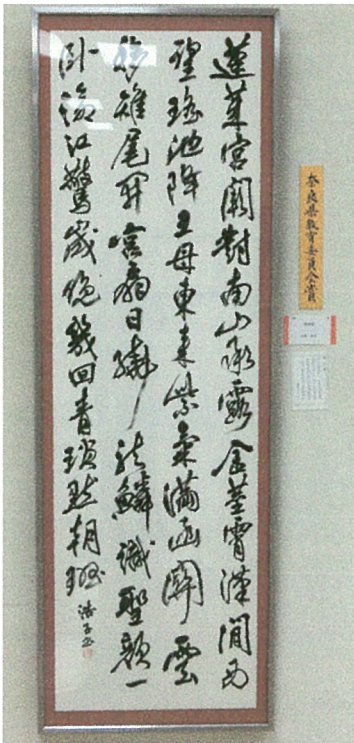 蓬萊宮闕對南山承露金莖霄漢間西
望瑤池降王母東来紫氣滿函關雲
移雉尾開宮扇日繞龍鱗識聖顏一
臥滄江驚歲晚幾回青瑣點朝班
奈良県教育委員会賞